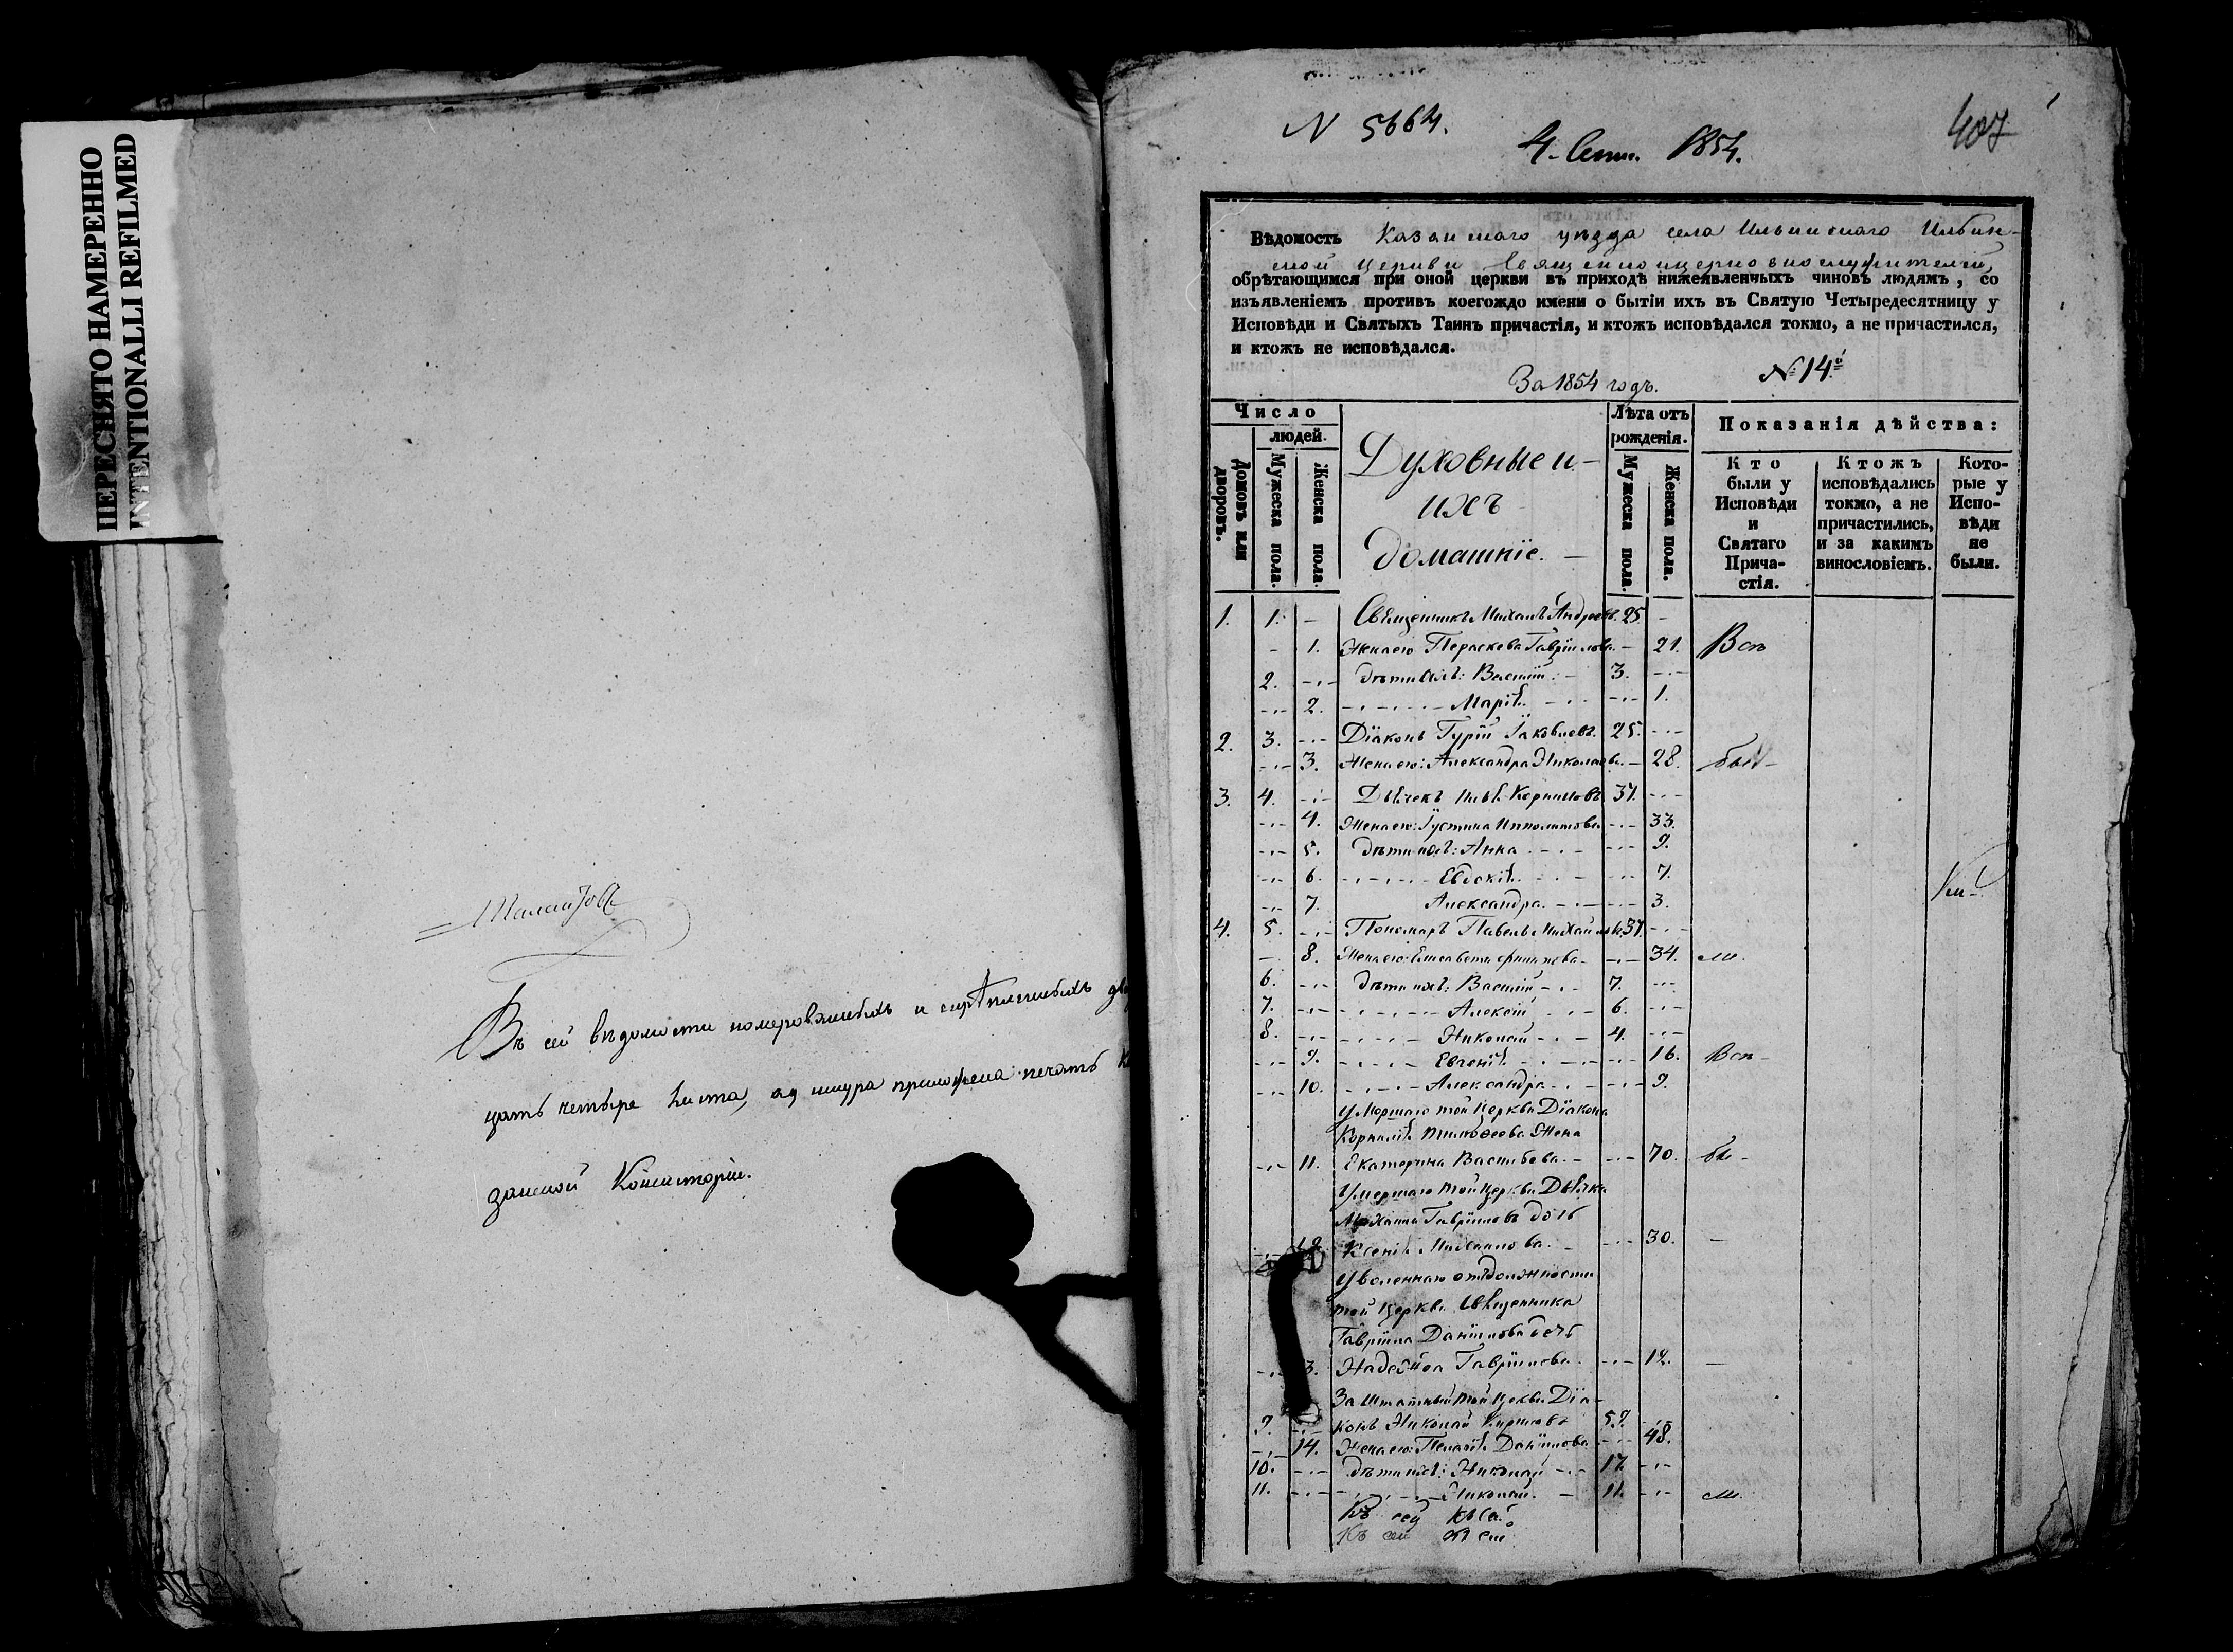 ПЕРЕСНЯТО НАМЕРЕННО
INTENTIONALLI REFILMED
Въ сей вѣдомости номерованныхъ и скрѣпленныхъ
цать четыре листа, къ шнура приложена печать
занской Консисторіи.
N 5664.
4. Сент. 1854.
407
Вѣдомость Казанскаго уѣзда села Ильинскаго Ильин-
ской церкви Священноцерковнослужителей,
обрѣтающимся при оной церкви въ приходѣ нижеявленныхъ чиновъ людямъ, со
изъявленіемъ противъ коегождо имени о бытіи ихъ въ Святую Четыредесятницу у
Исповѣди и Святыхъ Таинъ причастія, и ктожъ исповѣдался токмо, а не причастился,
и ктожъ не исповѣдался.
За 1854 годъ. № 14й
Число
людей.
Домовъ или дворовъ.
Мужеска пола.
Женска пола.
Духовные и
ихъ
домашніе.
Лѣта отъ рожденія.
Мужеска пола.
Женска пола.
Показанія дѣйства:
Кто были у Исповѣди и Святаго Прича-стія.
Ктожъ исповѣдались токмо, а не причастились, и за какимъ винословіемъ.
Кото-рые у Испо-вѣди не были.
1. 1. - Священникъ Михаилъ Андреевъ. 25. -
- 1. Жена его Параскева Гавріилова. - 21. Всѣ
2. - дѣти ихъ: Василій - 3. -
- 2. - Марія. - 1.
2. 3. - Діаконъ Гурій Іаковлевъ. 25. -
- 3. Жена его: Александра Николаева. - 28. были
3. 4. - Дьячекъ Илья Корниловъ 37. -
- 4. Жена его: Іустина Ипполитова - 33.
- 5. дѣти ихъ: Анна - 9.
- 6. - Евдокія. - 7.
- 7. Александра. - 3.
4. 5. - Пономарь Павелъ Михайловъ. 37. -
- 8. Жена его: Елисавета - 34.
6. - дѣти ихъ: Василій - 7. -
7. - Алексій - 6. -
8. - Николай - 4. -
- 9. - Евгенія - 16. Всѣ -
- 10. - Александра - 9.
Умершаго той церкви Діакона
Корнилія Тимофеева Жена
- 11. Екатерина Васильева. - 70. бы-
Умершаго той церкви Дьячка
Михаила Гавріилова дочь
- 12. Ксенія Михайлова. - 30. -
Уволеннаго отъ должности
той церкви Священника
Гавріила Даніилова дочь
- 3. Надежда Гавріилова. - 12. -
Заштатный той церкви Діа-
9. - конъ Николай Кириловъ 59. -
- 14. Жена его: Пелагія Даніилова - 48.
10. - дѣти ихъ: Николай - 17. -
11. - Николай. - 11. -